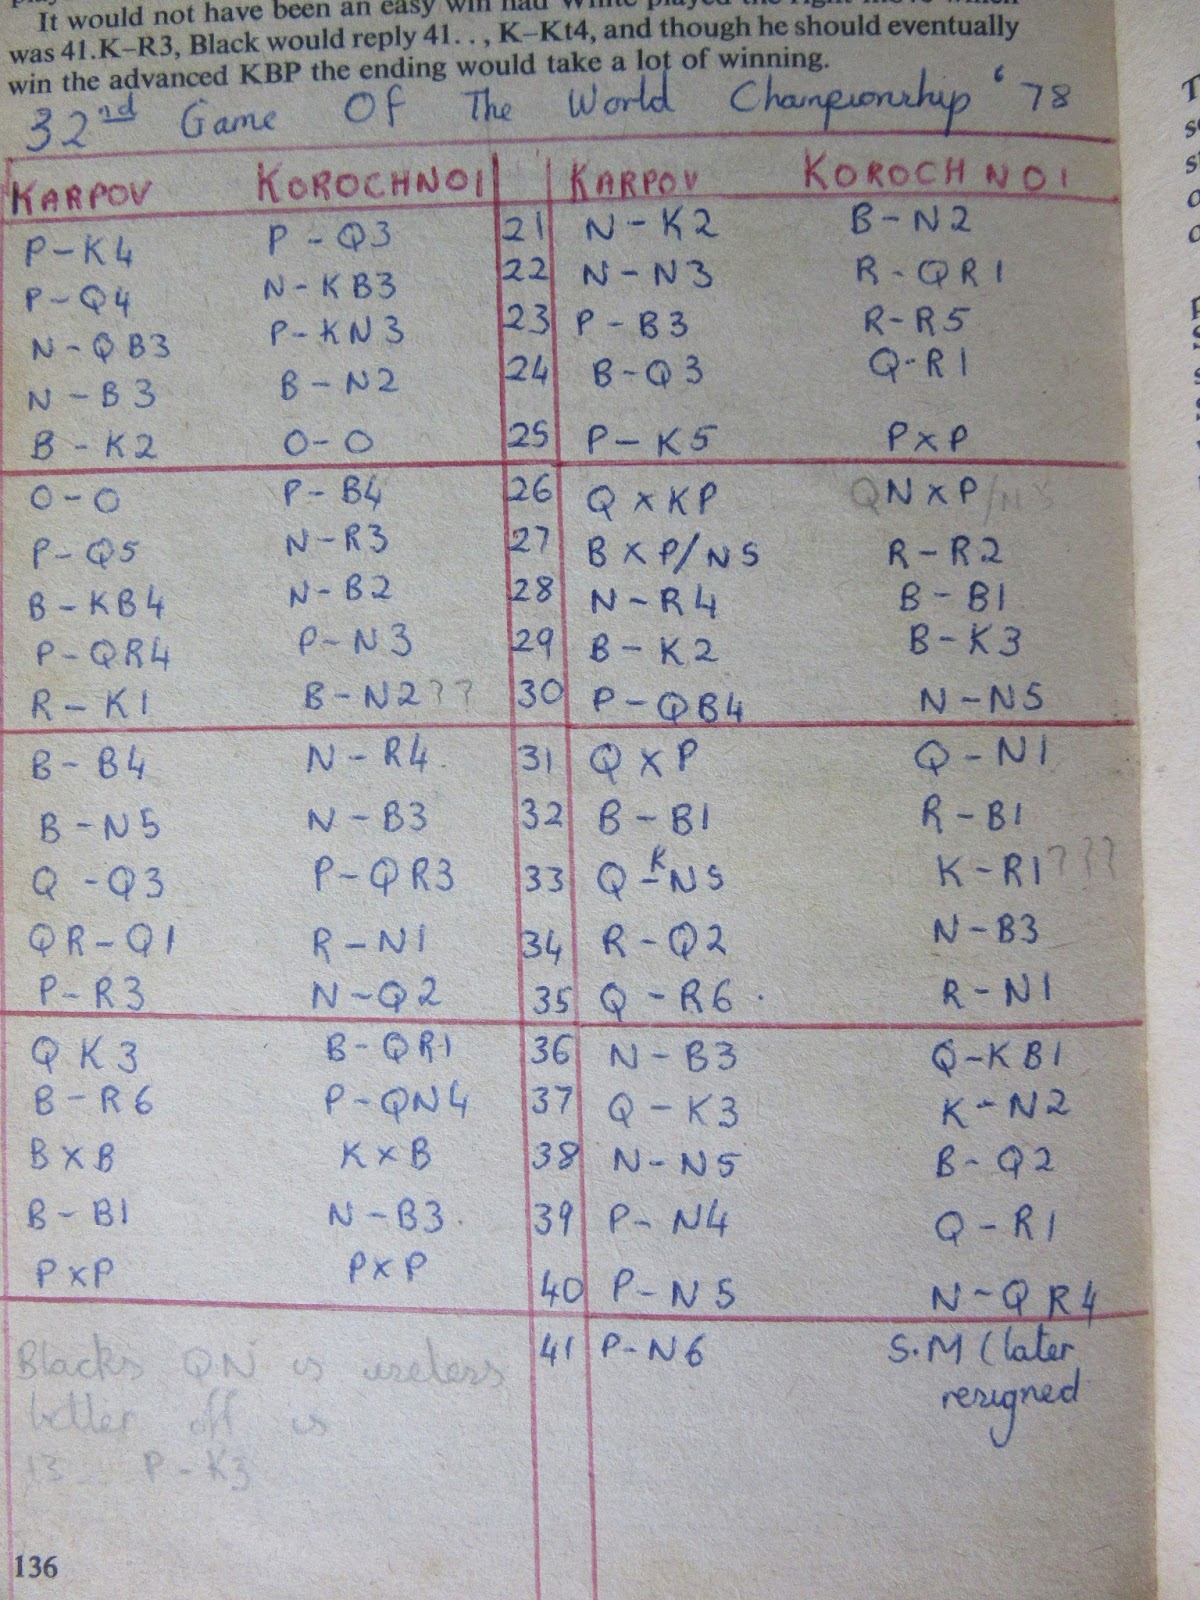 It would not have been an easy win had White played the right move which
was 41.K–R3, Black would reply 41. . , K–Kt4, and though he should eventually
win the advanced KBP the ending would take a lot of winning.
32nd Game Of The World Championship '78
KARPOV KOROCHNOI KARPOV KOROCHNOI
P-K4 P-Q3 21 N-K2 B-N2
P-Q4 N-KB3 22 N-N3 R-QR1
N-QB3 P-KN3 23 P-B3 R-R5
N-B3 B-N2 24 B-Q3 Q-R1
B-K2 O-O 25 P-K5 PxP
O-O P-B4 26 QxKP QNxP/N5
P-Q5 N-R3 27 BxP/N5 R-R2
B-KB4 N-B2 28 N-R4 B-B1
P-QR4 P-N3 29 B-K2 B-K3
R-K1 B-N2?? 30 P-QB4 N-N5
B-B4 N-R4. 31 QxP Q-N1
B-N5 N-B3 32 B-B1 R-B1
Q-Q3 P-QR3 33 Q-KN5 K-R1???
QR-Q1 R-N1 34 R-Q2 N-B3
P-R3 N-Q2 35 Q-R6. R-N1
Q K3 B-QR1 36 N-B3 Q-KB1
B-R6 P-QN4 37 Q-K3 K-N2
BxB KxB 38 N-N5 B-Q2
B-B1 N-B3. 39 P-N4 Q-R1
PxP PxP 40 P-N5 N-QR4
41 P-N6 S.M (later
resigned
Blacks QN is useless
better off is
13... P-K3
136